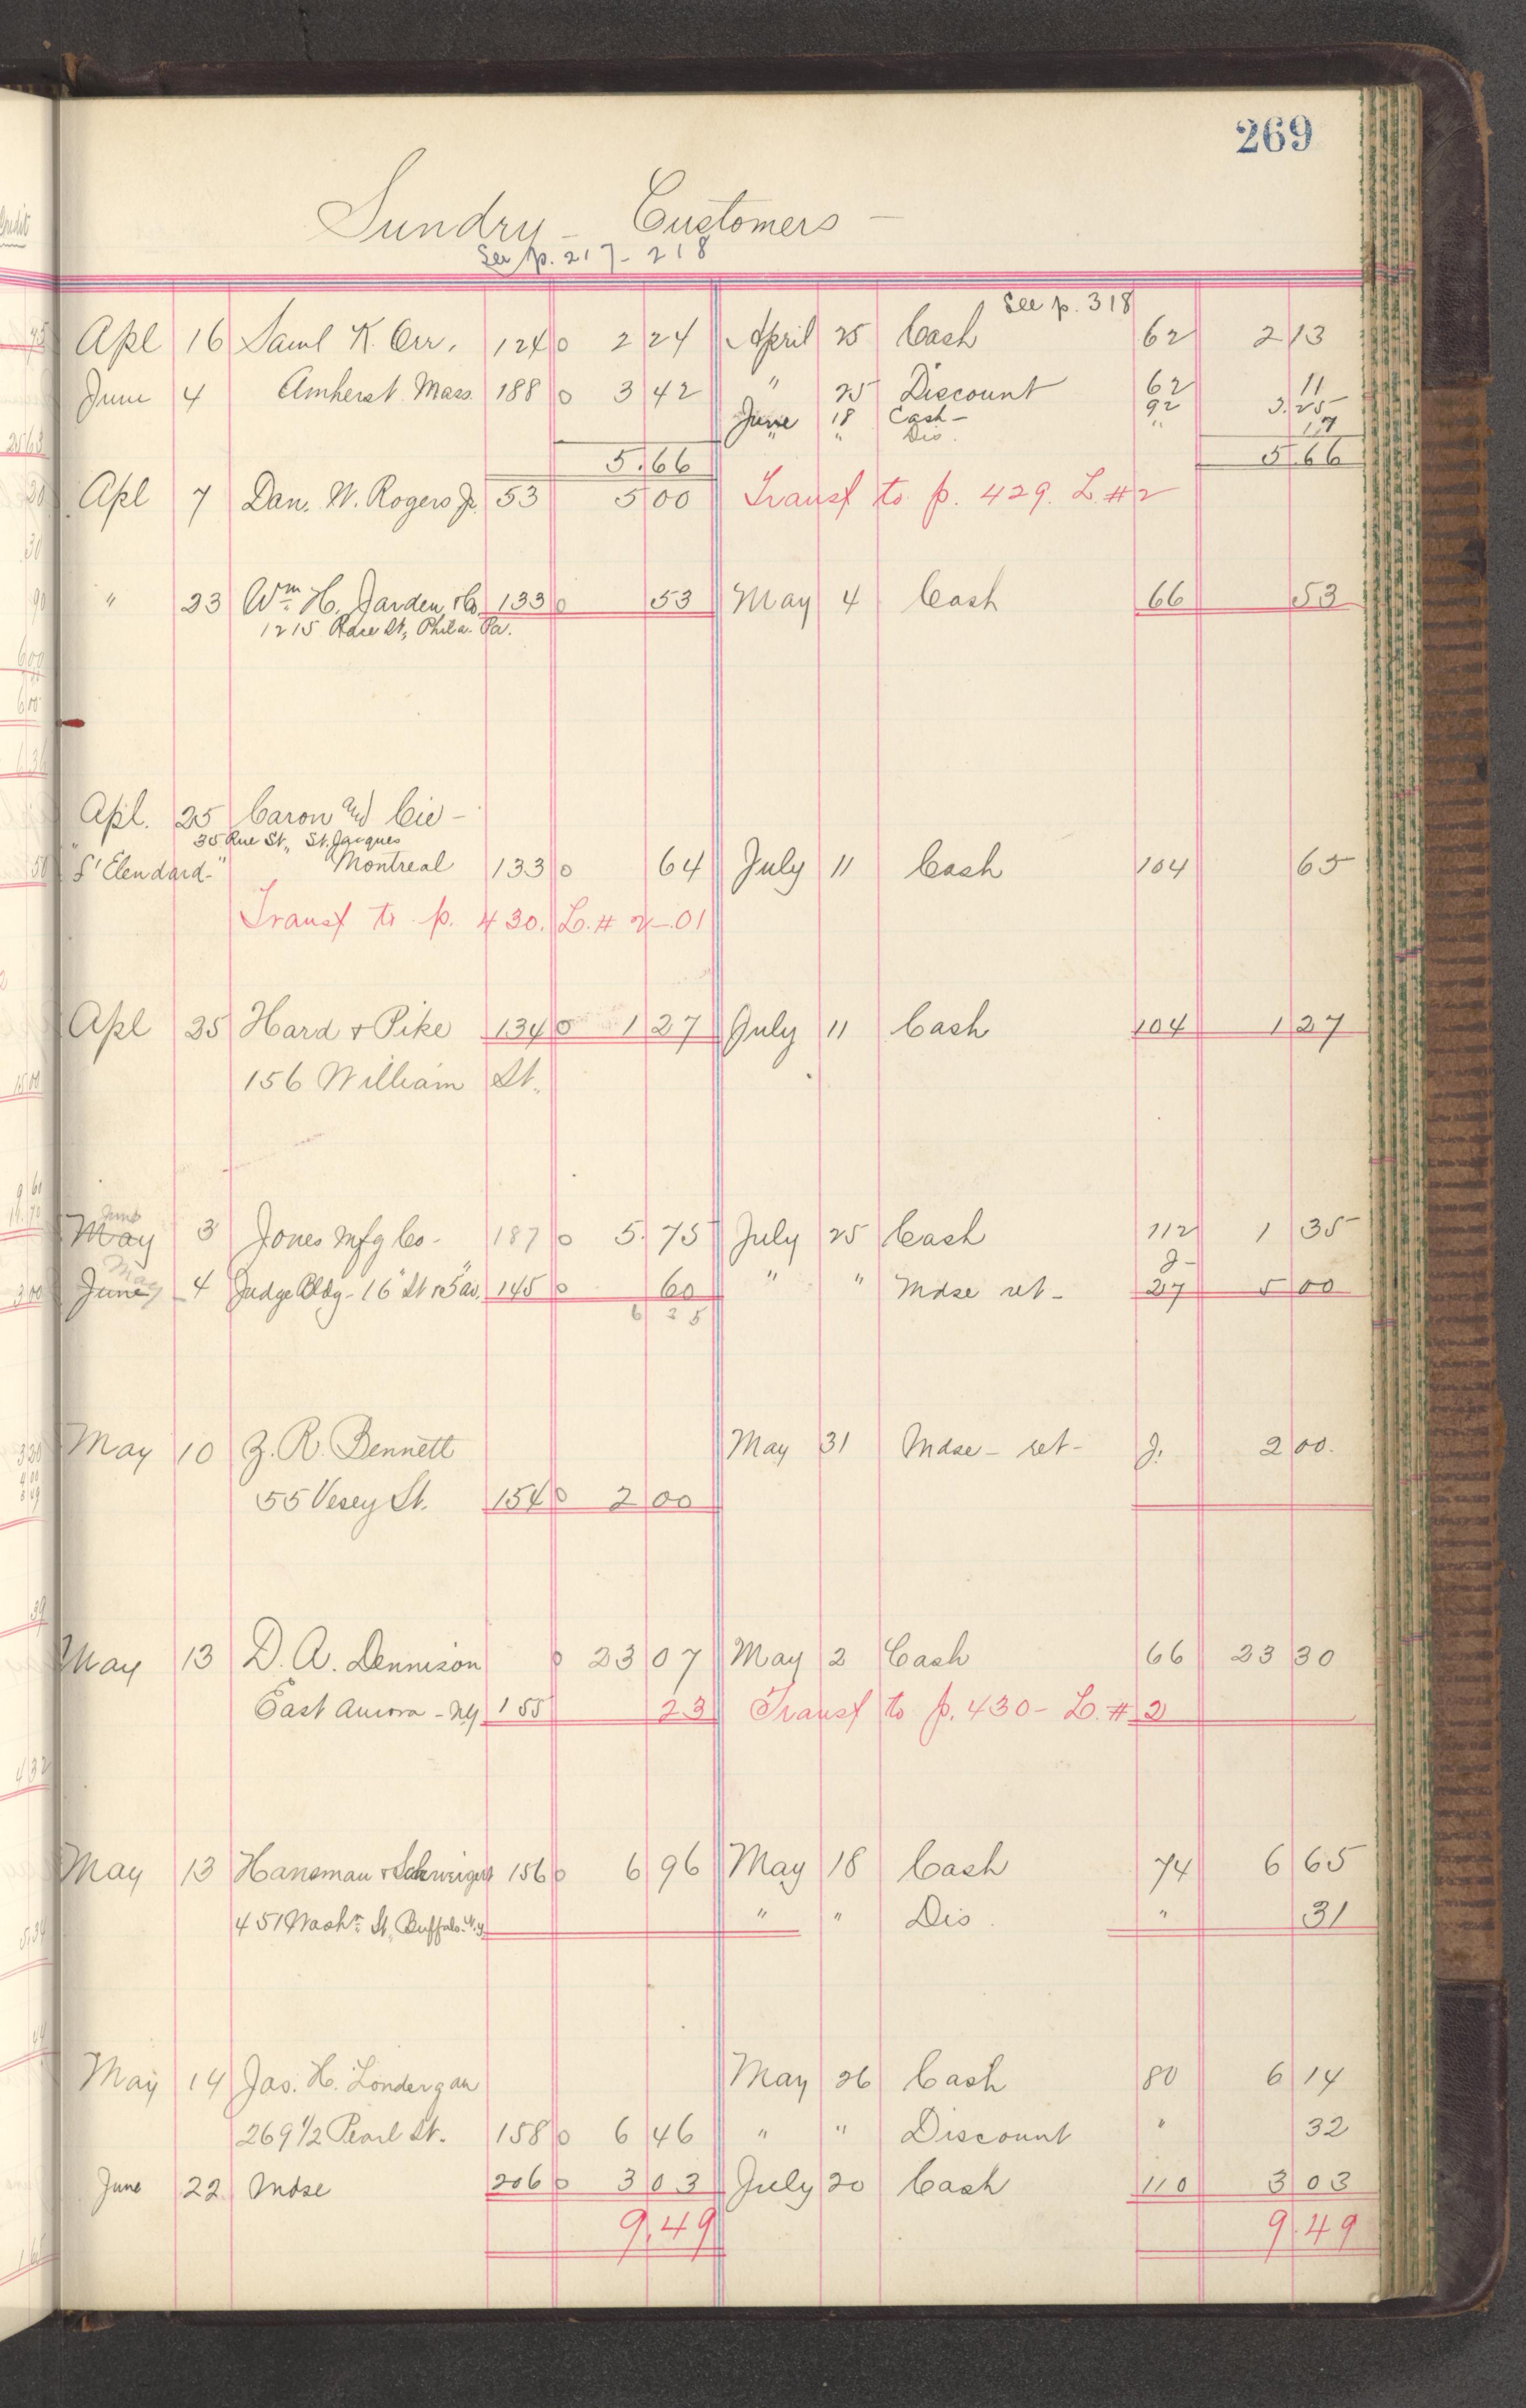 269
Sundry - Customers -
See p. 217-218
See p. 318
Apl 16 Saml K. Orr, 124 0 2 24 April 25 Cash 62 2 13
June 4 Amherst Mass. 188 0 3 42 " 25 Discount 62 11
June 18 Cash - 92 3.25
" " Dis. " 17
5.66 5.66
Apl 7 Dan. W. Rogers Jr. 53 5 00 Transf to p. 429. L. # 2
" 23 Wm H. Jarden & Co. 133 0 53 May 4 Cash 66 53
1215 Race St., Phila. Pa.
Apl. 25 Caron and Cie -
35 Rue St., St. Jacques
Montreal 133 0 64 July 11 Cash 104 65
Transf to p. 430. L. # 2 - .01
Apl 25 Hard & Pike 134 0 1 27 July 11 Cash 104 1 27
156 William St.
June
May 3 Jones Mfg Co - 187 0 5. 75 July 25 Cash 112 1 35
May J-
June 4 Judge Bldg - 16" St & 5" av. 145 0 60 " " Mdse ret - 27 5 00
6 35
May 10 Z. R. Bennett May 31 Mdse - ret - J. 2 00.
55 Vesey St. 154 0 2 00
May 13 D. A. Dennison 0 23 07 May 2 Cash 66 23 30
East Aurora - NY 155 23 Transf to p. 430 - L. # 2
May 13 Hansman & 156 0 6 96 May 18 Cash 74 6 65
451 Washn. St., Buffalo. N.Y. " " Dis. " 31
May 14 Jas. H. Londergan May 26 Cash 80 6 14
269 1/2 Pearl St. 158 0 6 46 " " Discount " 32
June 22 Mdse 206 0 3 03 July 20 Cash 110 3 03
9.49 9.49